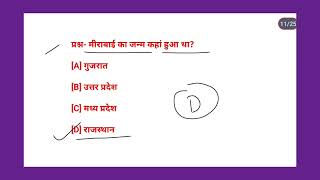 11/25
प्रश्न- मीराबाई का जन्म कहां हुआ था?
[A] गुजरात
[B] उत्तर प्रदेश
[C] मध्य प्रदेश
[D] राजस्थान
D